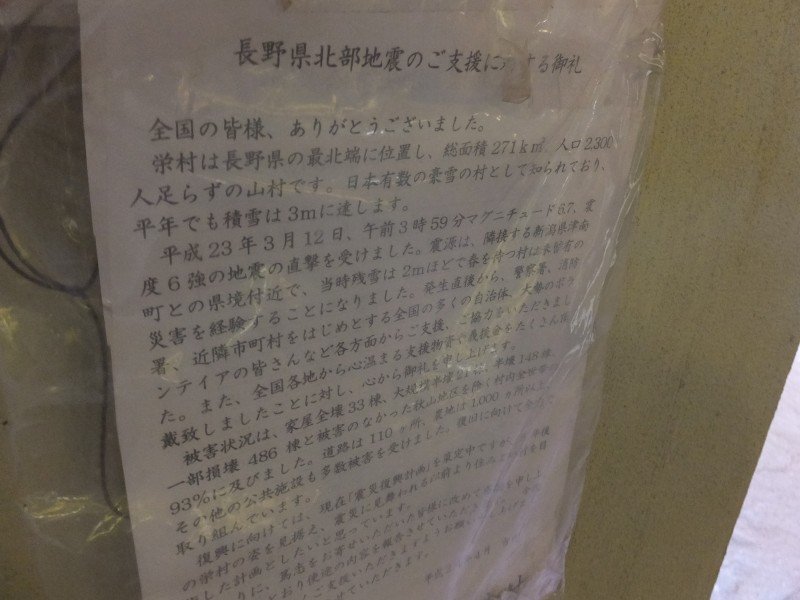 長野県北部地震のご支援に対する御礼
全国の皆様、ありがとうございました。
栄村は長野県の最北端に位置し、総面積271k㎡、人口2,300
人足らずの山村です。日本有数の豪雪の村として知られており、
平年でも積雪は3mに達します。
平成23年3月12日、午前3時59分マグニチュード6.7、震
度6強の地震の直撃を受けました。震源は、隣接する新潟県津南
町との県境付近で、当時残雪は2mほどで春を待つ村は未曾有の
災害を経験することになりました。発生直後から、警察署、消防
署、近隣市町村をはじめとする全国の多くの自治体、大勢のボラ
ンテイアの皆さんなど各方面からご支援、ご協力をいただきまし
た。また、全国各地から心温まる支援物資や義援金をたくさん頂
戴致しましたことに対し、心から御礼を申し上げます。
被害状況は、家屋全壊33棟、大規模半壊 半壊148棟、
一部損壊486棟と被害のなかった秋山地区を除く村内全世帯の
93%に及びました。道路は110ヶ所、農地は1,000ヵ所以上、
その他の公共施設も多数被害を受けました。復旧に向けて全力で
取り組んでいます。
復興に向けては、現在「震災復興計画」を策定中ですが、年後
の栄村の姿を見据え、震災に見舞われる以前より住み よい村を目
した計画としたいと思っています。
に、篤志をお寄せいただいた皆様に改めて を申し上
とおり使途の内容を報告させていただき
ご支援いただきますようお願い
せていただきます。